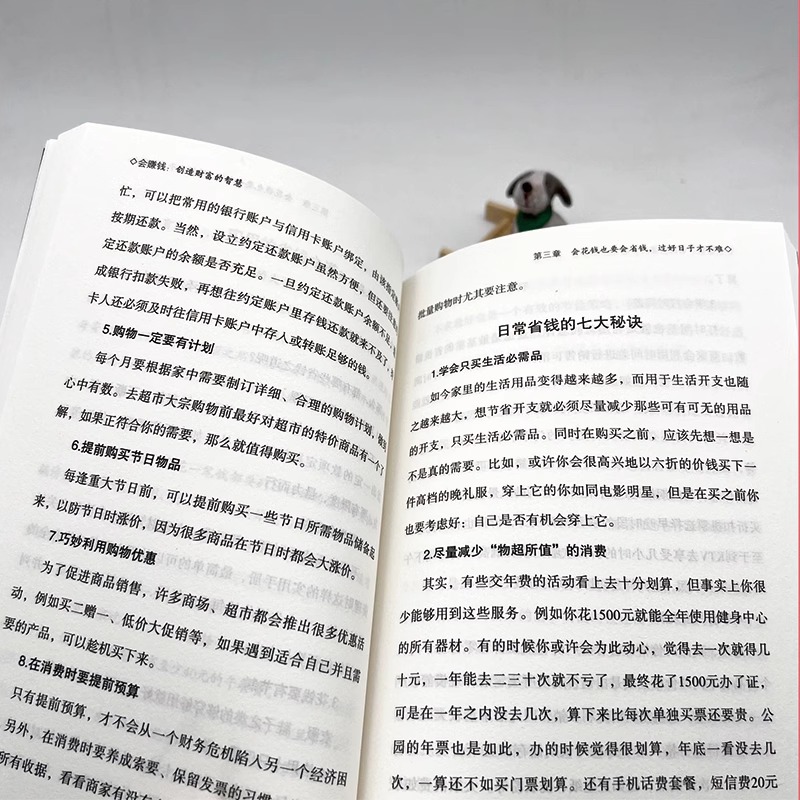 ◇会赚钱：创造财富的智慧
忙，可以把常用的银行账户与信用卡账户绑定，由
按期还款。当然，设立约定还款账户虽然方便，但还要注意
定还款账户的余额是否充足。一旦约定还款账户余额不足，
成银行扣款失败，再想往约定账户里存钱还款就来不及了，
卡人还必须及时往信用卡账户中存入或转账足够的钱。
5.购物一定要有计划
每个月要根据家中需要制订详细、合理的购物计划，
心中有数。去超市大宗购物前最好对超市的特价商品有一个了
解，如果正符合你的需要，那么就值得购买。
6.提前购买节日物品
每逢重大节日前，可以提前购买一些节日所需物品储备起
来，以防节日时涨价，因为很多商品在节日时都会大涨价。
7.巧妙利用购物优惠
为了促进商品销售，许多商场、超市都会推出很多优惠活
动，例如买二赠一、低价大促销等，如果遇到适合自己并且需
要的产品，可以趁机买下来。
8.在消费时要提前预算
只有提前预算，才不会从一个财务危机陷入另一个经济困
另外，在消费时要养成索要、保留发票的习惯
所有收据，看看商家有没有
第三章 会花钱也要会省钱，过好日子才不难◇
批量购物时尤其要注意。
日常省钱的七大秘诀
1.学会只买生活必需品
如今家里的生活用品变得越来越多，而用于生活开支也随
之越来越大，想节省开支就必须尽量减少那些可有可无的用品
的开支，只买生活必需品。同时在购买之前，应该先想一想是
不是真的需要。比如，或许你会很高兴地以六折的价钱买下一
件高档的晚礼服，穿上它的你如同电影明星，但是在买之前你
也要考虑好：自己是否有机会穿上它。
2.尽量减少“物超所值”的消费
其实，有些交年费的活动看上去十分划算，但事实上你很
少能够用到这些服务。例如你花1500元就能全年使用健身中心
的所有器材。有的时候你或许会为此动心，觉得去一次就得几
十元，一年能去二三十次就不亏了，最终花了1500元办了证，
可是在一年之内没去几次，算下来比每次单独买票还要贵。公
园的年票也是如此，办的时候觉得很划算，年底一看没去几
次，一算还不如买门票划算。还有手机话费套餐，短信费20元